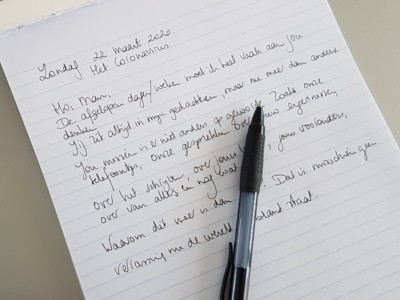 Zondag 22 maart 2020
Het Coronavirus
Hoi Mam,
De afgelopen dagen/weken moet ik heel vaak aan jou
denken
Jij zit altijd in mijn gedachten, maar nu meer dan anders.
Jou missen is er niet anders op geworden. Zoals onze
telefoontjes, onze gesprekken over
over het schrijven, over jouw jouw voorouders,
over van alles en nog wat
Waarom dit meer is dan Dat is misschien geen
verrassing nu de wereld stil staat.